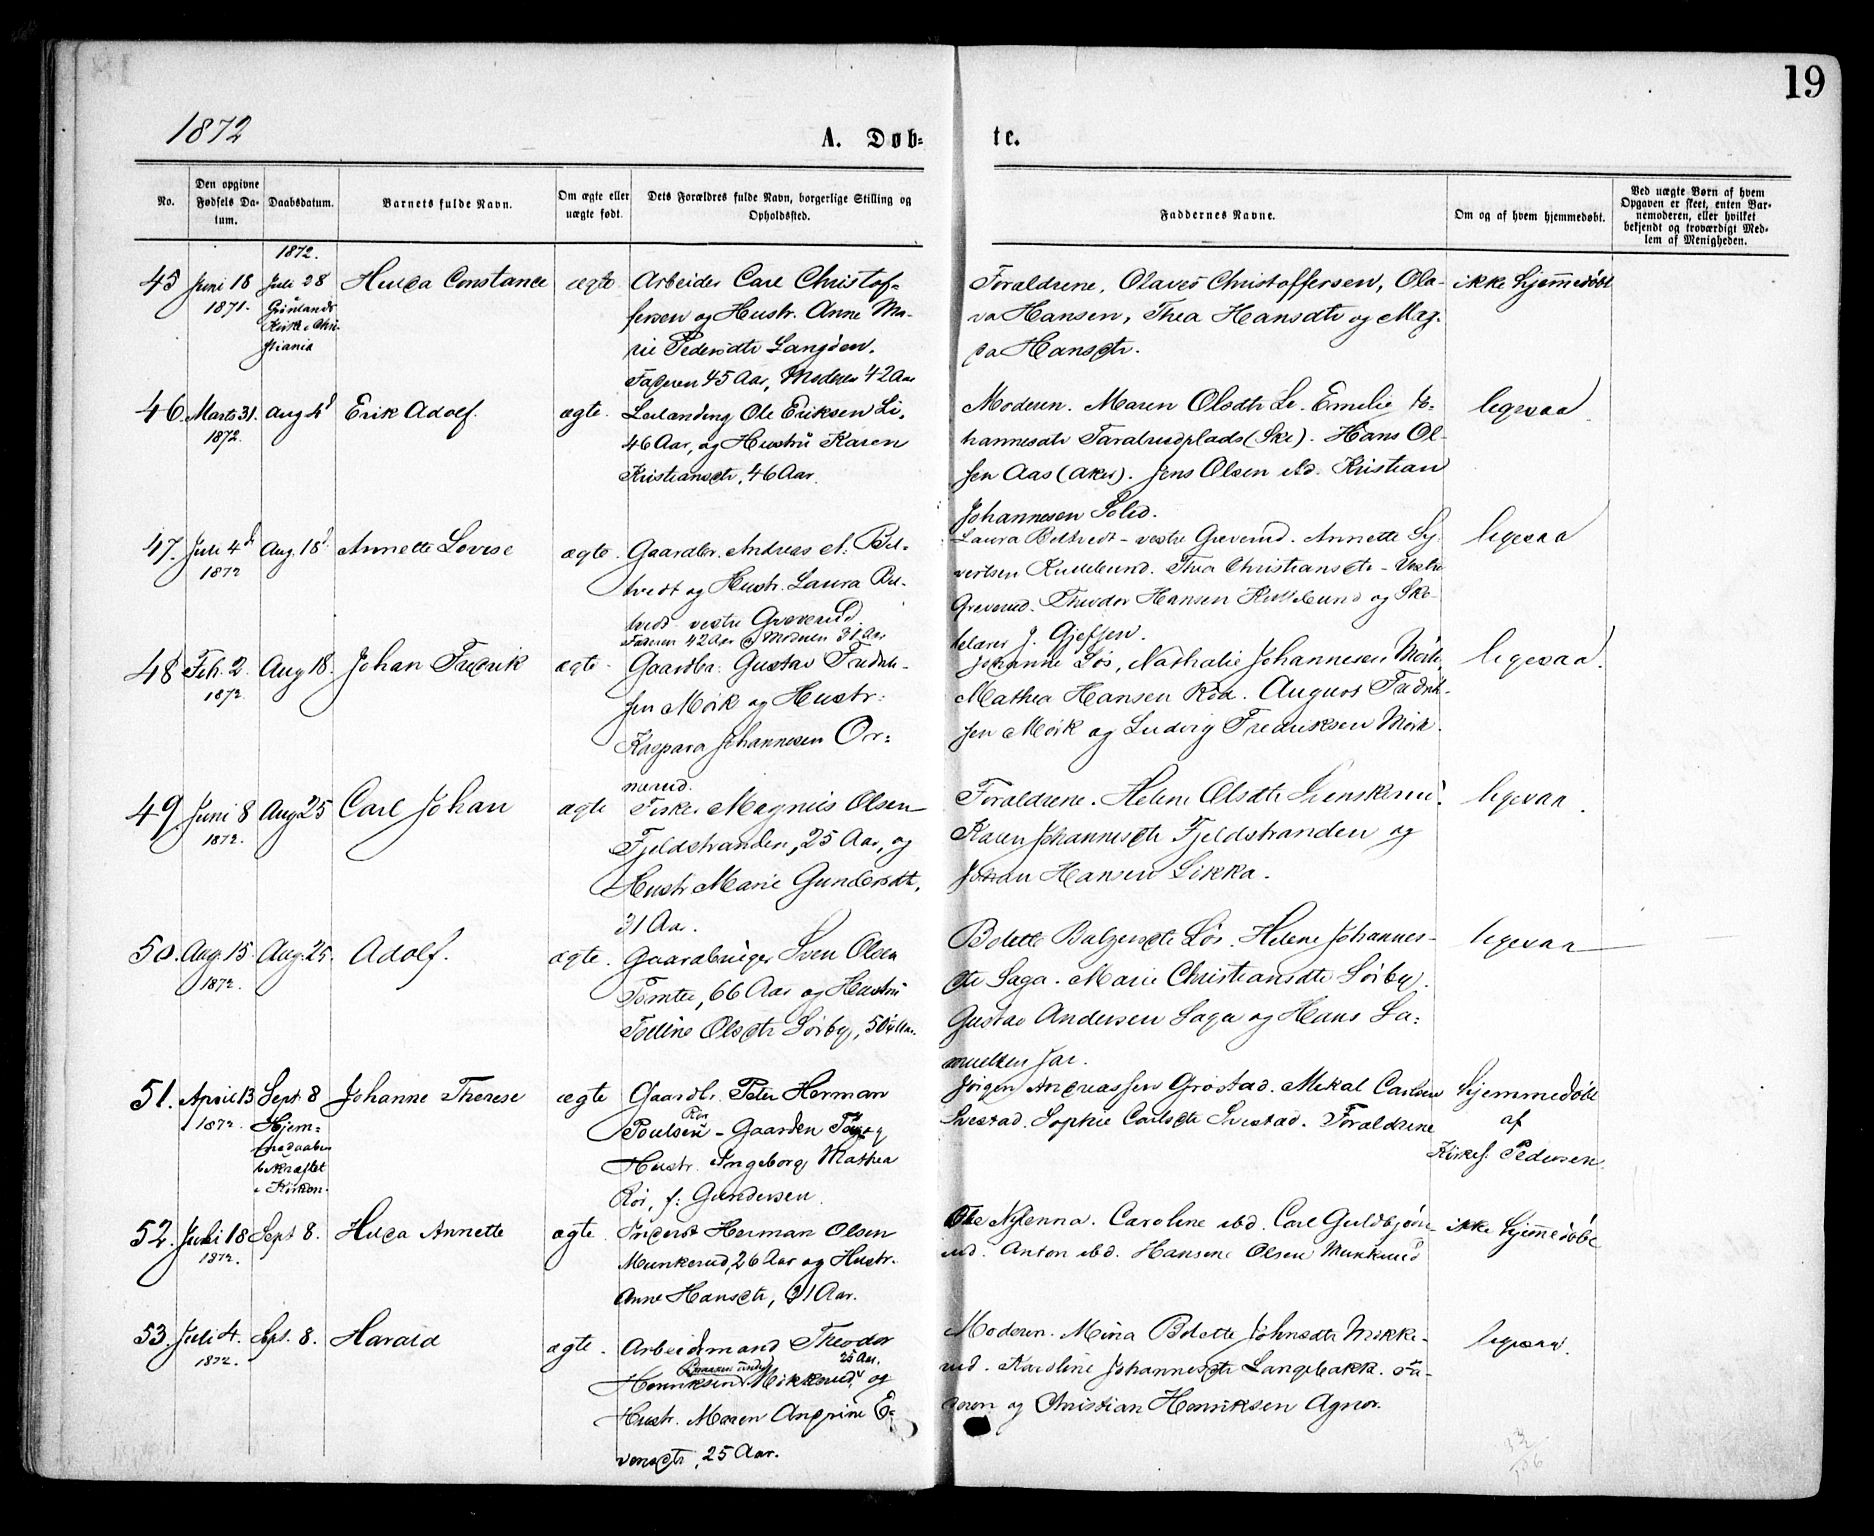 19
1872
A. Døb-
te.
No.
Den opgivne
Fødsels Da-
tum.
Daabsdatum.
Barnets fulde Navn.
Om ægte eller
uægte født.
Dets Forældres fulde Navn, borgerlige Stilling og
Opholdssted.
Faddernes Navne.
Om og af hvem hjemmedøbt.
Ved uægte Børn af hvem
Opgaven er skeet, enten Bar-
nemoderen, eller hvilket
bekjendt og troværdigt Med-
lem af Menigheden.
45
Juni 18
1871.
1872.
Juli 28
Grønlands
Kirke i Chri-
stiania
Hulda Constance
ægte
Arbeider Carl Christof-
fersen og Hustr. Anne Ma-
rie Pedersdtr Langåen.
Faderen 45 Aar, Moderen 42 Aar
Forældrene, Olaves Christoffersen, Ola-
va Hansen, Thea Hansdtr og Mag-
da Hansdtr.
ikke hjemmedøbt
46.
Marts 31.
1872.
Aug 4d
Erik Adolf.
ægte.
Leilænding Ole Eriksen Li,
46 Aar, og Hustru Karen
Kristiansdtr, 46 Aar.
Moderen. Maren Olsdtr Li. Emelie Jo-
hannesdtr Taraldrudplads (Ski). Hans Ol-
sen Aas (Aker). Jens Olsen ibd. Kristian
Johannesen
ligesaa
47.
Juli 4d
1872
Aug. 18d.
Annette Lovise
ægte.
Gaardbr. Andreas A. Bol-
tvedt og Hustr. Laura Bol-
tvedt vestre Greverud.
Faderen 42 Aar og Moderen 31 Aar
Laura Boltvedt - vestre Greverud. Annette Sy-
vertsen Kullebund. Thea Christiansdtr - Vestre
Greverud. Theodor Hansen Kullebund og Sko-
lelærer J. Gjefsen.
ligesaa
48
Feb. 2
1872.
Aug 18.
Johan Fredrik
ægte.
Gaardbr. Gustav Fredrik-
sen Mørk og Hustr.
Kaspara Johannesen Or-
merud.
Johanne Løs, Nathalie Johannesen Mørk,
Mathea Hansen Roa. Augus Fredrik-
sen Mørk og Ludvig Fredriksen Mørk.
ligesaa.
49.
Juni 8
1872.
Aug 25
Carl Johan
ægte
Fisker Magnus Olsen
Fjeldstranden, 25 Aar, og
Hustr Marie Gundersdtr,
31 Aar.
Forældrene. Helene Olsdtr Svenskerud.
Karen Johannesdtr Fjeldstranden og
Johan Hansen Sikka.
ligesaa.
50.
Aug. 15
1872.
Aug. 25.
Adolf.
ægte.
Gaardbruger Sven Olsen
Tomter, 66 Aar og Hustru
Toline Olsdtr Sörby, 50½ Aar.
Bolette Balzersdtr Løs. Helene Johannes-
dtr Saga. Marie Christiansdtr Sörby.
Gustav Andersen Saga og Hans Sa-
muelsen Jar.
ligesaa
51.
April 13
1872.
Sept. 8
Hjem-
medaaben
bekræftet
i Kirken.
Johanne Therese
ægte
Gaardbr. Peter Herman
Rör
Poulsen - Gaarden og
Hustr. Ingeborg Mathea
Rör, f: Gundersen.
Jørgen Andreassen Grøstad. Mikal Carlsen
Svestad. Sophie Carlsdtr Svestad. Forældrene
hjemmedøbt
af
Kirkes. Pedersen.
52.
Juli 18
1872.
Sept 8.
Hulda Annette
ægte.
Inderst Herman Olsen
Munkerud, 26 Aar og Hustr.
Anne Hansdtr, 31 Aar.
Ole Nylenna. Caroline ibd. Carl Guldbjørn-
rud. Anton ibd. Hansine Olsen Munkerud
ikke hjemmedøbt
53.
Juli 4.
1872.
Spt. 8.
Harald
ægte.
Arbeidsmand Theodor
25 Aar.
Henriksen Mikkerud, og
Hustr. Maren Andrine E-
vensdtr, 25 Aar.
Moderen. Mina Bolette Johnsdtr Mikke-
rud. Karoline Johannesdtr Langebakke. Fa-
deren og Christian Henriksen Agnor.
ligesaa